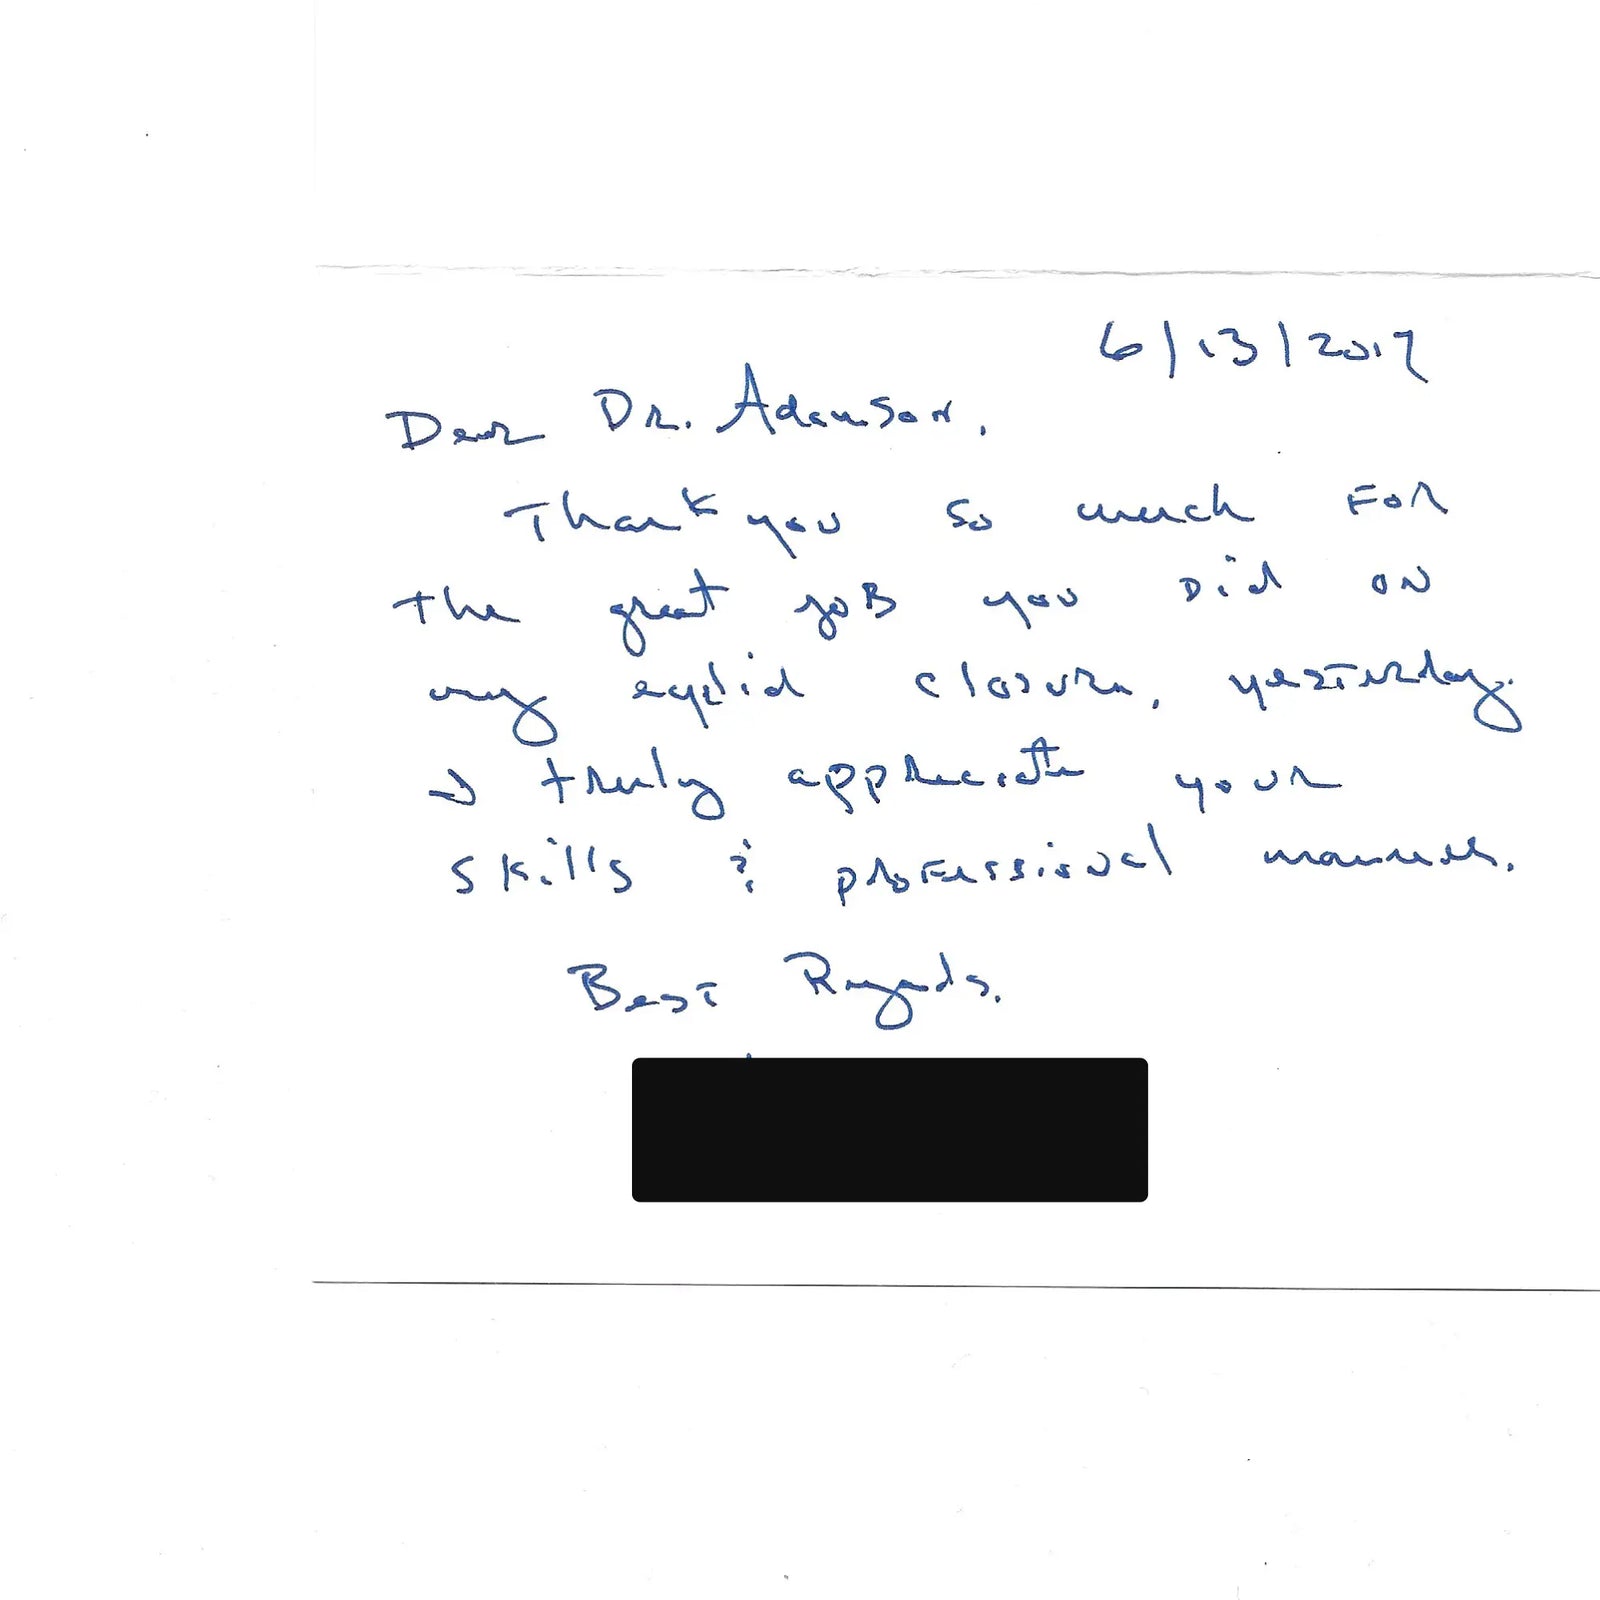 6/13/2017
Dear Dr. Adamson,
Thank you so much FOR
the great joB you DId ON
my eyelid closure, yesterday.
I truly appreciate your
skills & professional manner.
Best Regards,